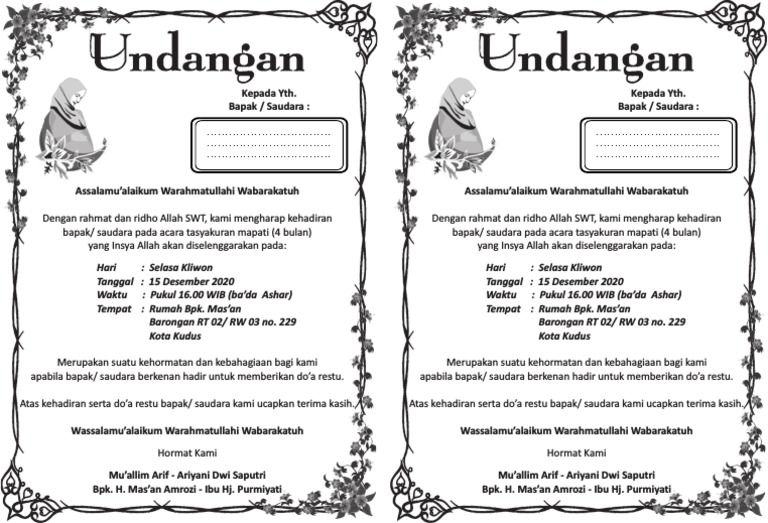 Undangan
Kepada Yth.
Bapak / Saudara :
Assalamu'alaikum Warahmatullahi Wabarakatuh
Dengan rahmat dan ridho Allah SWT, kami mengharap kehadiran
bapak/ saudara pada acara tasyakuran mapati (4 bulan)
yang Insya Allah akan diselenggarakan pada:
Hari : Selasa Kliwon
Tanggal : 15 Desember 2020
Waktu : Pukul 16.00 WIB (ba'da Ashar)
Tempat : Rumah Bpk. Mas'an
Barongan RT 02/ RW 03 no. 229
Kota Kudus
Merupakan suatu kehormatan dan kebahagiaan bagi kami
apabila bapak/ saudara berkenan hadir untuk memberikan do'a restu.
Atas kehadiran serta do'a restu bapak/ saudara kami ucapkan terima kasih.
Wassalamu'alaikum Warahmatullahi Wabarakatuh
Hormat Kami
Mu'allim Arif - Ariyani Dwi Saputri
Bpk. H. Mas'an Amrozi - Ibu Hj. Purmiyati
Undangan
Kepada Yth.
Bapak / Saudara :
Assalamu'alaikum Warahmatullahi Wabarakatuh
Dengan rahmat dan ridho Allah SWT, kami mengharap kehadiran
bapak/ saudara pada acara tasyakuran mapati (4 bulan)
yang Insya Allah akan diselenggarakan pada:
Hari : Selasa Kliwon
Tanggal : 15 Desember 2020
Waktu : Pukul 16.00 WIB (ba'da Ashar)
Tempat : Rumah Bpk. Mas'an
Barongan RT 02/ RW 03 no. 229
Kota Kudus
Merupakan suatu kehormatan dan kebahagiaan bagi kami
apabila bapak/ saudara berkenan hadir untuk memberikan do'a restu.
Atas kehadiran serta do'a restu bapak/ saudara kami ucapkan terima kasih.
Wassalamu'alaikum Warahmatullahi Wabarakatuh
Hormat Kami
Mu'allim Arif - Ariyani Dwi Saputri
Bpk. H. Mas'an Amrozi - Ibu Hj. Purmiyati